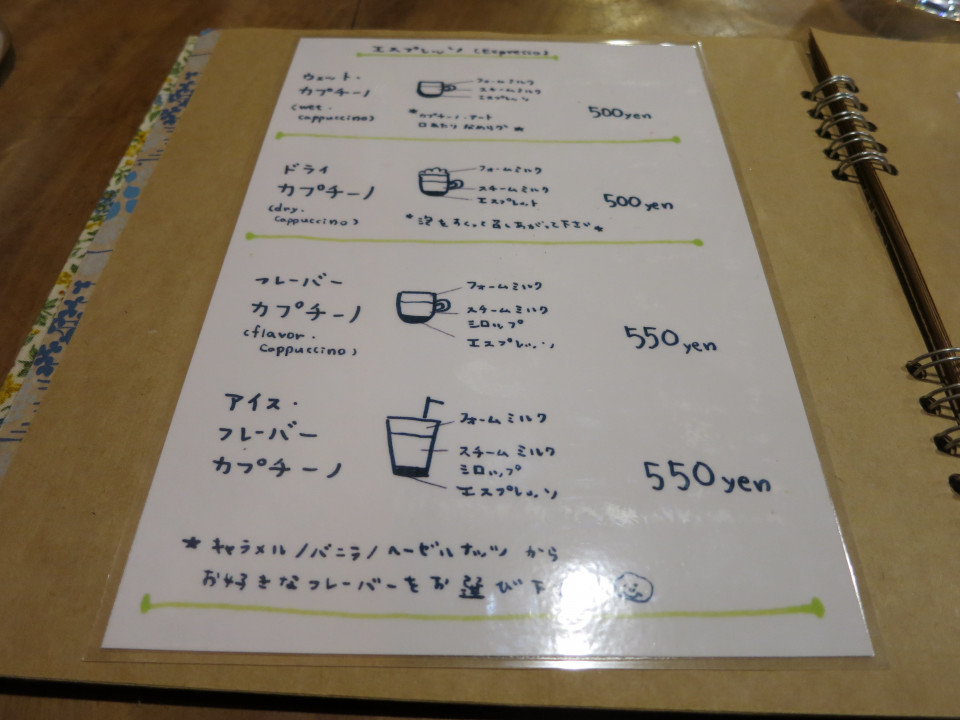 エスプレッソ (Espresso)
ウェット・
カプチーノ
(wet.
cappuccino)
フォームミルク
スチームミルク
エスプレッソ
*カプチーノ・アート
口あたり なめらか *
500yen
ドライ
カプチーノ
(dry.
cappuccino)
フォームミルク
スチームミルク
エスプレッソ
*泡をすくって召し上がって下さい*
500yen
フレーバー
カプチーノ
(flavor.
cappuccino)
フォームミルク
スチームミルク
シロップ
エスプレッソ
550yen
アイス・
フレーバー
カプチーノ
フォームミルク
スチームミルク
シロップ
エスプレッソ
550yen
* キャラメル / バニラ / ヘーゼルナッツ から
お好きなフレーバーをお選び下